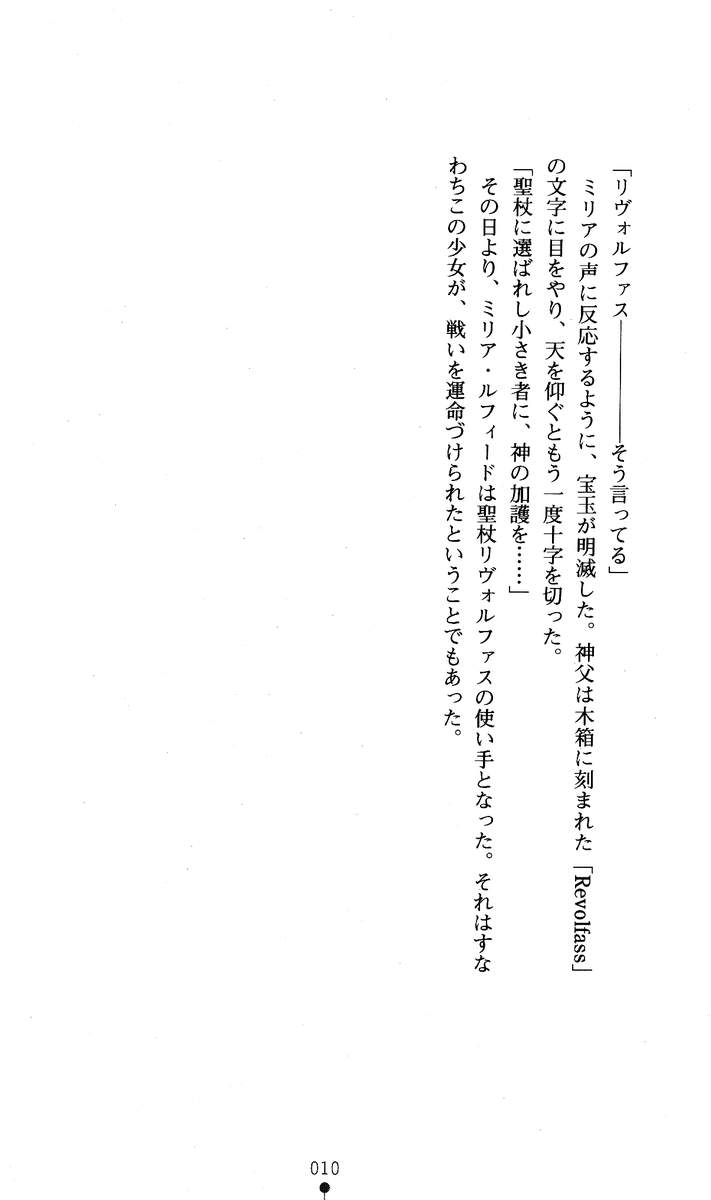 「リヴォルファス――――そう言ってる」
ミリアの声に反応するように、宝玉が明滅した。神父は木箱に刻まれた「Revolfass」
の文字に目をやり、天を仰ぐともう一度十字を切った。
「聖杖に選ばれし小さき者に、神の加護を……」
その日より、ミリア・ルフィードは聖杖リヴォルファスの使い手となった。それはすな
わちこの少女が、戦いを運命づけられたということでもあった。
010